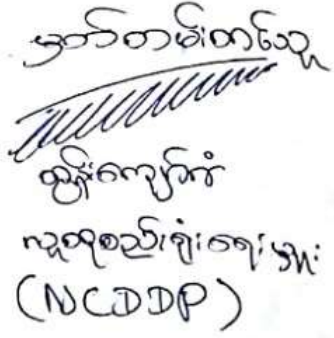 မှတ်တမ်းတင်သူ
ထွန်းကျော်ကံ
လူထုစည်းရုံးရေးမှူး
(NCDDP)